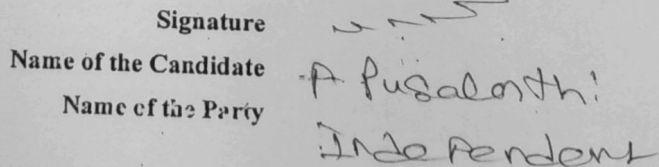 Signature
Name of the Candidate A Pugalenthi
Name of the Party Independent